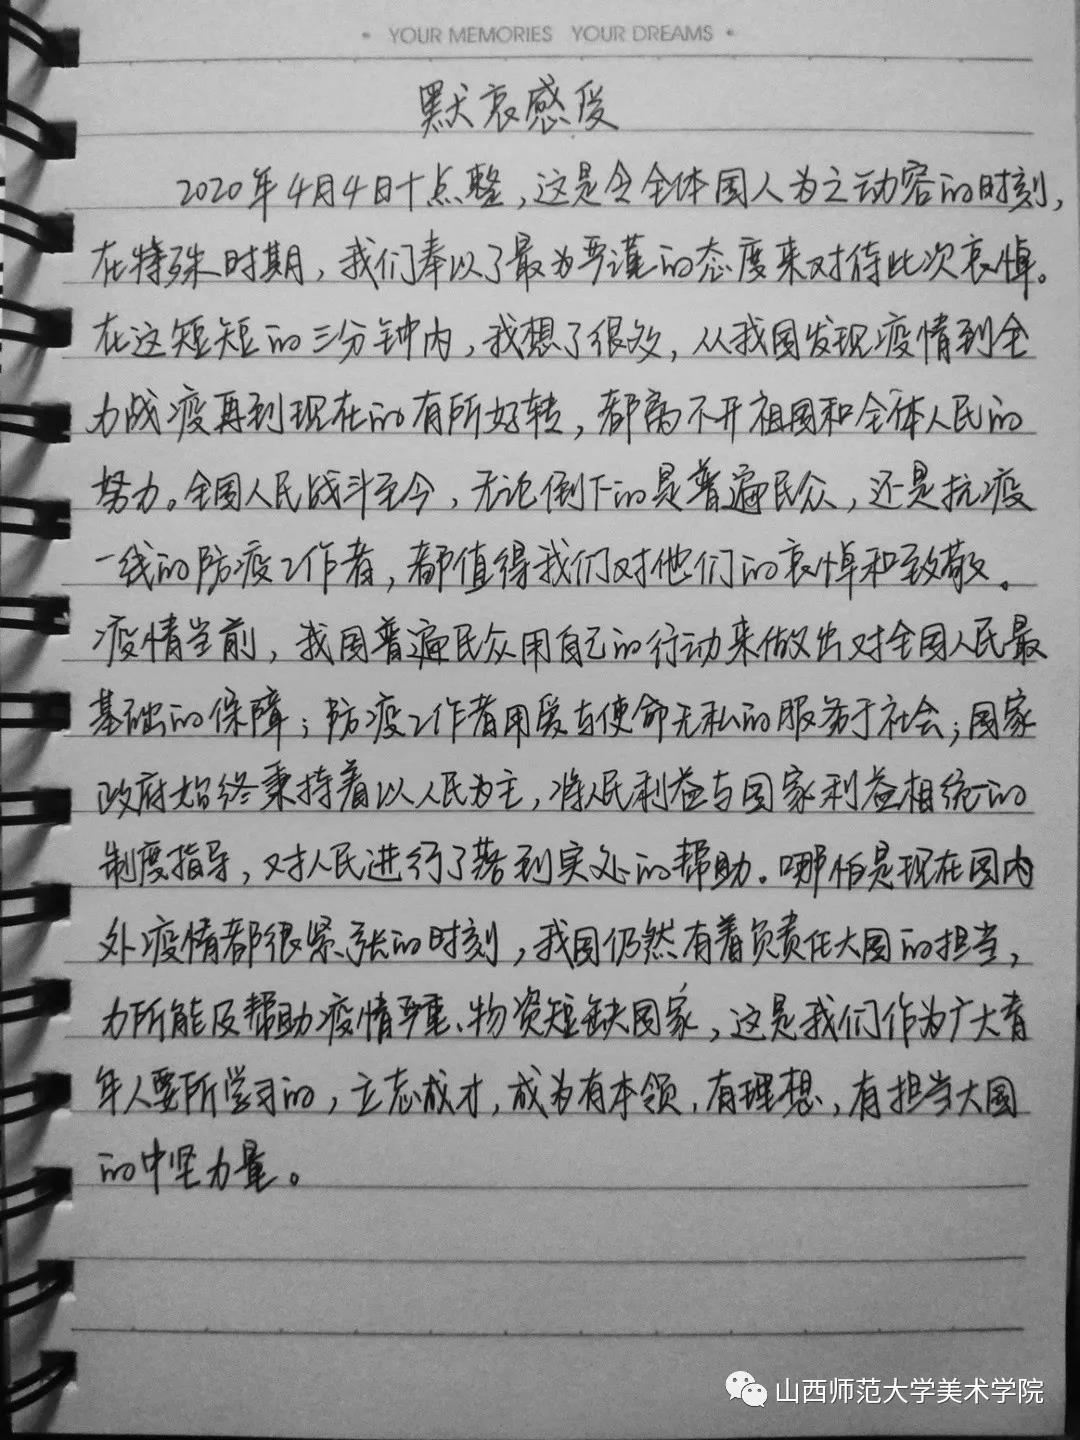 • YOUR MEMORIES YOUR DREAMS •
默哀感受
2020年4月4日十点整,这是令全体国人为之动容的时刻,
在特殊时期,我们奉以了最为严谨的态度来对待此次哀悼。
在这短短的三分钟内,我想了很多,从我国发现疫情到全
力战疫再到现在的有所好转,都离不开祖国和全体人民的
努力。全国人民战斗至今,无论倒下的是普遍民众,还是抗疫
一线的防疫工作者,都值得我们对他们的哀悼和致敬。
疫情当前,我国普遍民众用自己的行动来做出对全国人民最
基础的保障;防疫工作者用爱与使命无私的服务于社会;国家
政府始终秉持着以人民为主,将人民利益与国家利益相统一的
制度指导,对人民进行了落到实处的帮助。哪怕是现在国内
外疫情都很紧张的时刻,我国仍然有着负责任大国的担当,
力所能及帮助疫情严重、物资短缺国家,这是我们作为广大青
年人要所学习的,立志成才,成为有本领,有理想,有担当大国
的中坚力量。
山西师范大学美术学院